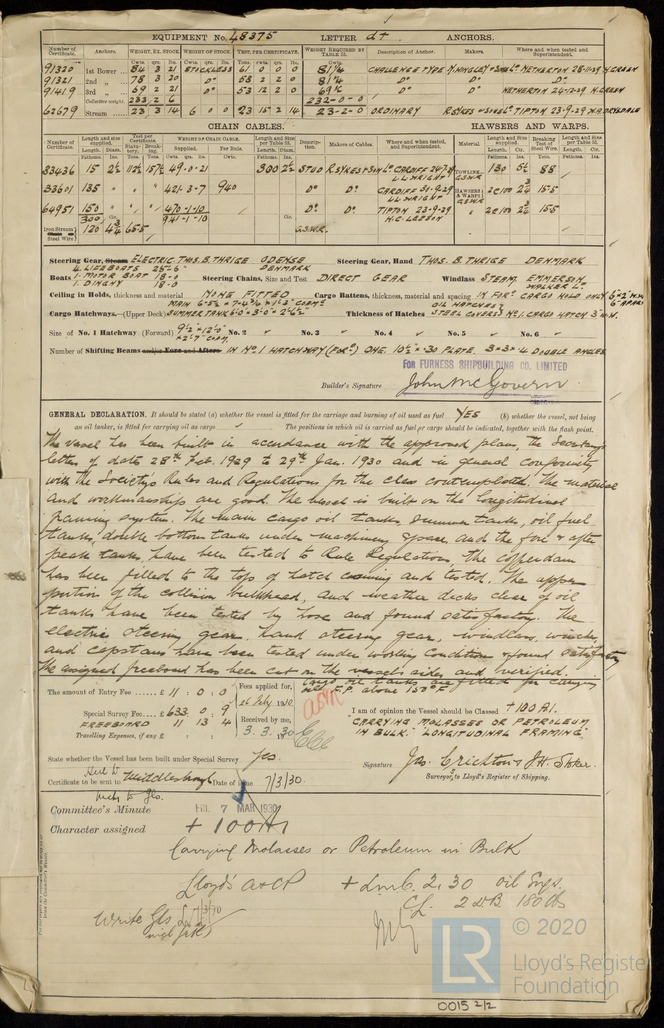 EQUIPMENT No. 48375 LETTER dt ANCHORS.
Number of Certificate. Anchors. WEIGHT, EX. STOCK. WEIGHT OF STOCK. TEST, PER CERTIFICATE. WEIGHT REQUIRED BY TABLE 31. Description of Anchor. Makers. Where and when tested and Superintendent.
91320 1st Bower 84 3 21 STOCKLESS 61 0 0 0 81¼ CHALLENGE TYPE N. HINGLEY & SONS Ld. NETHERTON 28-11-29 H. GREEN
91321 2nd " 78 3 20 Do 58 2 2 0 81¼ Do Do Do
91419 3rd " 69 2 21 Do 53 12 2 0 69½ Do Do NETHERTON 24-12-29 H. GREEN
Collective weight. 233 2 6 232-0-0
62679 Stream 23 3 14 6 0 0 23 15 2 14 23-2-0 ORDINARY R SYKES & SON Ld. TIPTON 23-9-29 H.A. DRYSDALE
CHAIN CABLES. HAWSERS AND WARPS.
Number of Certificate. Length and size supplied. Test per Certificate. WEIGHT OF CHAIN CABLE. Length and Size per Table 31. Description. Makers of Cables. Where and when tested, and Superintendent. Material. Length and Size supplied. Breaking Test of Steel Wire. Length and Size per Table 31.
33436 15 2½ 49-0-21 300 2½ STUD R SYKES & SON Ld. CARDIFF 24-7-29 TOWLINE G.S.W.R 130 5½ 88
L.L. WRIGHT
33601 135 " " " 421-3-7 940 Do Do CARDIFF 31-9-29 HAWSERS & WARPS G.S.W.R 2 @ 100 2¾ 15.5
L.L. WRIGHT
64951 150 " " " 470-1-10 Do Do TIPTON 23-9-29 " 2 @ 100 2¾ 15.5
300 941-1-10 H.C. LEESON
Iron Stream or Steel Wire 120 4¾ 65.5 G.S.W.R.
Steering Gear, Steam ELECTRIC THOS. B. THRIGE ODENSE DENMARK Steering Gear, Hand THOS. B. THRIGE DENMARK
Boats 4. LIFEBOATS 25'-6" 1. MOTOR BOAT 18-0 1. DINGHY 18-0 Steering Chains, Size and Test DIRECT GEAR Windlass STEAM. EMMERSON WALKER Ld.
Ceiling in Holds, thickness and material NONE FITTED Cargo Battens, thickness, material and spacing IN FORd. CARGO HOLD ONLY 6" × 2" 
Cargo Hatchways.—(Upper Deck) SUMMER TANK Thickness of Hatches OIL HATCHES STEEL COVERS No. 1. CARGO HATCH 3"
Size of No. 1 Hatchway (Forward) 9'-2" × 12'-0" No. 2 " No. 3 " No. 4 " No. 5 " No. 6 "
Number of Shifting Beams and/or Fore and Afters IN No. 1 HATCHWAY (FORd) ONE. 10½" × .30 PLATE. 3×3×.4 DOUBLE ANGLES.
FOR FURNESS SHIPBUILDING CO. LIMITED
Builder's Signature John McGovern
GENERAL DECLARATION. It should be stated (a) whether the vessel is fitted for the carriage and burning of oil used as fuel YES (b) whether the vessel, not being
an oil tanker, is fitted for carrying oil as cargo The positions in which oil is carried as fuel or cargo should be indicated, together with the flash point.
The vessel has been built in accordance with the approved plans the Secretary's
letters of dates 28th Feb. 1929 to 29th Jan. 1930 and in general conformity
with the Society's Rules and Regulations for the class contemplated. The material
and workmanship are good. The vessel is built on the longitudinal
framing system. The main cargo oil tanks, summer tanks, oil fuel
tanks, double bottom tanks under machinery space, and the fore & after
peak tanks, have been tested to Rule Regulations. The cofferdam
has been filled to the top of hatch coaming and tested. The upper
portion of the collision bulkhead, and weather decks clear of oil
tanks have been tested by hose and found satisfactory. The
electric steering gear, hand steering gear, windlass, winches,
and capstans have been tested under working condition & found satisfactory
The assigned freeboard has been cut on the vessel's sides and verified.
Cargo oil tanks are fitted for carrying
oil F.P. above 150°F
The amount of Entry Fee ..... £ 11 : 0 : 0 Fees applied for,
Special Survey Fee.... £ 633 : 0 : 9 26 Feby 1930
FREEBOARD 11 13 4 Received by me,
Travelling Expenses, if any £ : : 3. 3. 30
I am of opinion the Vessel should be Classed +100 A1.
"CARRYING MOLASSES OR PETROLEUM
IN BULK." "LONGITUDINAL FRAMING"
State whether the Vessel has been built under Special Survey Yes.
Signature Jas. Crichton & J.H. Stoker.
Surveyors to Lloyd's Register of Shipping.
Certificate to be sent to Middlesbrough Date of issue 7/3/30.
Committee's Minute FRI. 7 MAR 1930
Character assigned + 100A1
Carrying Molasses or Petroleum in Bulk
Lloyd's A&CP + LMC 2,30 oil Engs.
CL. 2 DB 180 lbs
Write Gls 7/3/30
© 2020
LR Lloyd's Register
Foundation
0015 2/2